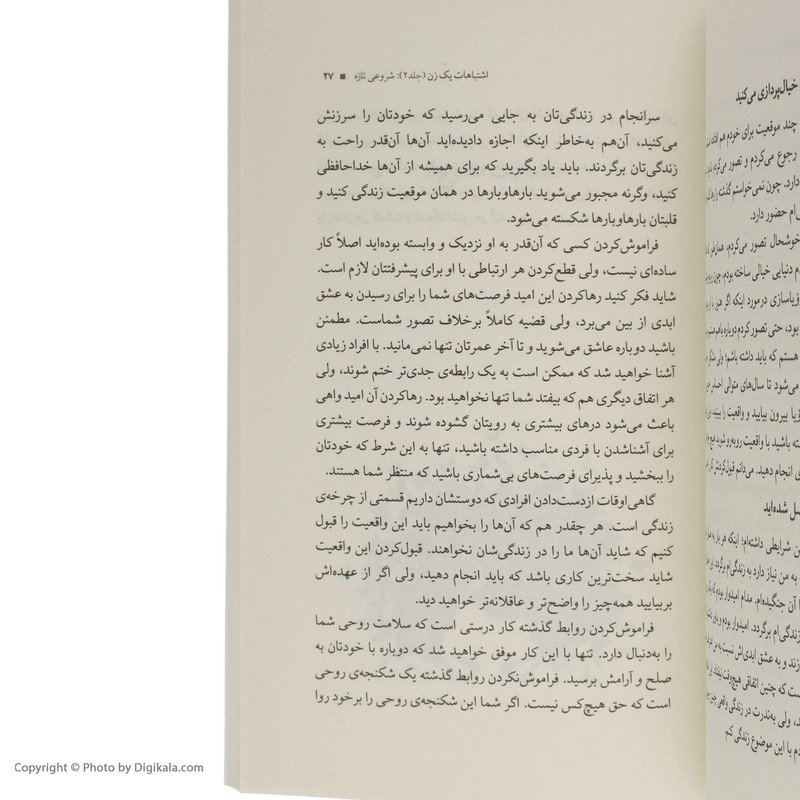 اشتباهات یک زن (جلد ۲): شروعی تازه ■ ۲۷
سرانجام در زندگی‌تان به جایی می‌رسید که خودتان را سرزنش
می‌کنید، آن‌هم به‌خاطر اینکه اجازه داده‌اید آن‌ها آن‌قدر راحت به
زندگی‌تان برگردند. باید یاد بگیرید که برای همیشه از آن‌ها خداحافظی
کنید، وگرنه مجبور می‌شوید بارهاوبارها در همان موقعیت زندگی کنید و
قلبتان بارهاوبارها شکسته می‌شود.
فراموش‌کردن کسی که آن‌قدر به او نزدیک و وابسته بوده‌اید اصلاً کار
ساده‌ای نیست، ولی قطع‌کردن هر ارتباطی با او برای پیشرفتتان لازم است.
شاید فکر کنید رهاکردن این امید فرصت‌های شما را برای رسیدن به عشق
ابدی از بین می‌برد، ولی قضیه کاملاً برخلاف تصور شماست. مطمئن
باشید دوباره عاشق می‌شوید و تا آخر عمرتان تنها نمی‌مانید. با افراد زیادی
آشنا خواهید شد که ممکن است به یک رابطه‌ی جدی‌تر ختم شوند، ولی
هر اتفاق دیگری هم که بیفتد شما تنها نخواهید بود. رهاکردن آن امید واهی
باعث می‌شود درهای بیشتری به رویتان گشوده شوند و فرصت بیشتری
برای آشناشدن با فردی مناسب داشته باشید، تنها به این شرط که خودتان
را ببخشید و پذیرای فرصت‌های بی‌شماری باشید که منتظر شما هستند.
گاهی‌اوقات ازدست‌دادن افرادی که دوستشان داریم قسمتی از چرخه‌ی
زندگی است. هر چقدر هم که آن‌ها را بخواهیم باید این واقعیت را قبول
کنیم که شاید آن‌ها ما را در زندگی‌شان نخواهند. قبول‌کردن این واقعیت
شاید سخت‌ترین کاری باشد که باید انجام دهید، ولی اگر از عهده‌اش
بربیایید همه‌چیز را واضح‌تر و عاقلانه‌تر خواهید دید.
فراموش‌کردن روابط گذشته کار درستی است که سلامت روحی شما
را به‌دنبال دارد. تنها با این کار موفق خواهید شد که دوباره با خودتان به
صلح و آرامش برسید. فراموش‌نکردن روابط گذشته یک شکنجه‌ی روحی
است که حق هیچ‌کس نیست. اگر شما این شکنجه‌ی روحی را برخود روا
خیال‌پردازی می‌کنید
چند موقعیت برای خودم هم
رجوع می‌کردم و تصور می‌کردم
دارد. چون نمی‌خواستم گذشته را
حضور دارد.
خوشحال تصور می‌کردم،
دنیایی خیالی ساخته بودم،
درمورد اینکه اگر
بود، حتی تصور کردم دوباره باهم
هستم که باید داشته باشم؛ ولی
می‌شود تا سال‌های متوالی احساس
بیرون بیایید و واقعیت را ببینید،
باشید با واقعیت روبه‌رو شوید
انجام دهید. می‌دانم قبول‌کردنش
شده‌اید
شرایطی داشته‌ام؛ اینکه هر بار
به من نیاز دارد به زندگی‌ام برگردد،
آن جنگیده‌ام. مدام امیدوار بودم که
زندگی‌ام برگردد. امیدوار بودم
و به عشق ابدی‌اش نسبت به من
که چنین اتفاقی هیچ‌وقت
ولی به‌ندرت در زندگی واقعی
با این موضوع زندگی کنم.
Copyright © Photo by Digikala.com